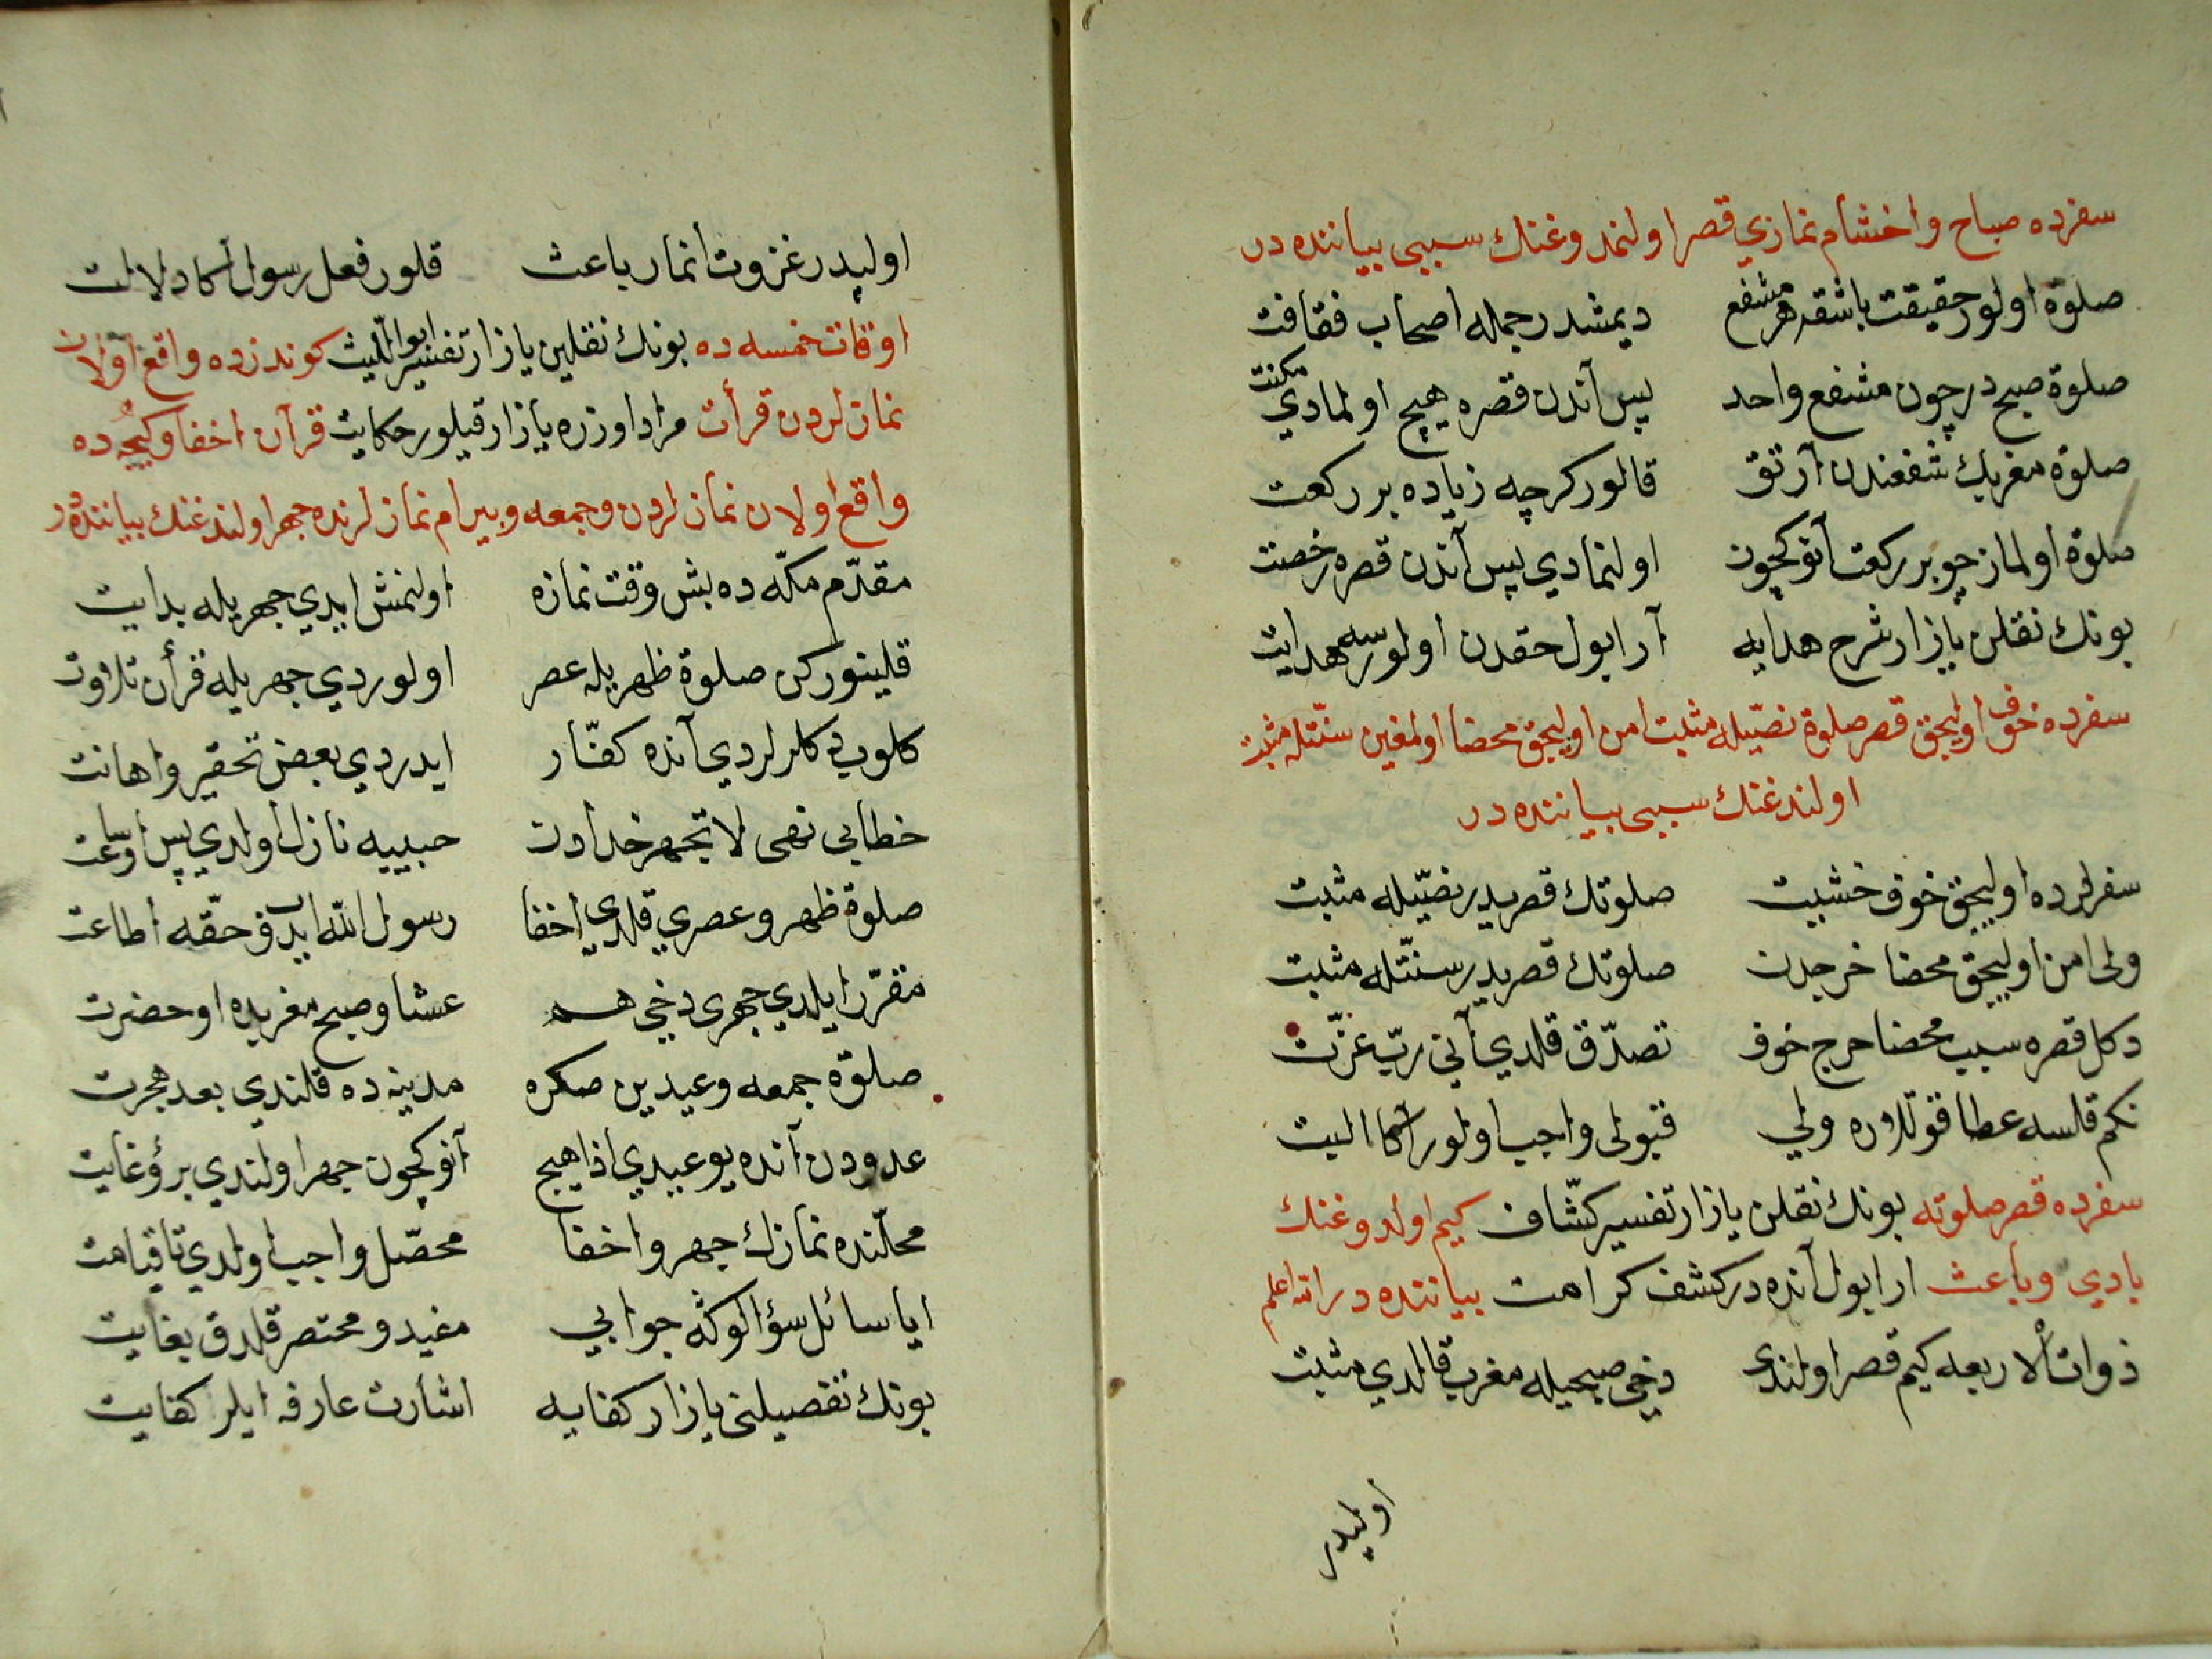 سفرده صباح و اخشام نمازي قصر اولنمدوغنك سببي بياننده در
صلوة اولور حقيقت باشقه هر مشفع ديمشدر جمله اصحاب فقافت
صلوة صبح در چون مشفع واحد پس آندن قصره هيچ اولمادي مكنت
صلوة مغربك شفعندن آرتق قالور كرچه زياده بر ركعت
صلوة اولماز چو بر ركعت آنوكچون اولنمادي پس آندن قصره رخصت
بونك نقلن يازار شرح هدايه آرا بول حقدن اولورسه هدايت
سفرده خوف اوليجق قصر صلوة نصّيله مثبت امن اوليجق محضا اولمغين سنّتله مثبت
اولندغنك سببي بياننده در
سفرلرده اوليجق خوف خشيت صلوتك قصريدر نصّيله مثبت
ولى امن اوليجق محضا خرجدن صلوتك قصريدر سنّتله مثبت
دكل قصره سبب محضا حرج خوف تصدّق قلدي آني ربّ عزّت
نكم قلسه عطا قوللاره ولي قبولى واجب اولور آكا البت
سفرده قصر صلوته بونك نقلن يازار تفسير كشّاف كيم اولدوغنك
بادي و باعث ارا بول آنده در كشف كرامت بياننده در الله اعلم
ذوات الاربعه كيم قصر اولندى دخي صبحيله مغرب قالدي مثبت
اوليدر
اوليدر غزوت انمار باعث قلور فعل رسول آكا دلالت
اوقات خمسه ده بونك نقلين يازار تفسير ابو الليث كوندزده واقع اولان
نمازلردن قرأت مراد اوزره يازار قيلور حكايت قرآن اخفا وكيجه ده
واقع اولان نمازلردن و جمعه و بيرام نمازلرنده جهر اولندغنك بياننده در
مقدّم مكّه ده بش وقت نمازه اولنمش ايدي جهريله بدايت
قلينوركن صلوة ظهريله عصر اولوردي جهريله قرأن تلاوت
كلوب ديكلرلردي آنده كفّار ايدردي بعض تحقير و اهانت
خطابي نهى لا تجهر خدادن حبيبيه نازل اولدي پس اوساعت
صلوة ظهر و عصري قلدي اخفا رسول الله ايدب حقّه اطاعت
مقرّر ايلدي جهرى دخي هم عشا و صبح مغربده او حضرت
صلوة جمعه وعيدين صكره مدينه ده قلندي بعد هجرت
عدودن آنده يوغيدي اذا هيچ آنوكچون جهر اولندي بروغايت
محلّنده نمازك جهر و اخفا محصّل واجب اولدي تا قيامت
ايا سائل سؤالوكه جوابي مفيد و مختصر قلدق بغايت
بونك تفصيلنى يازار كفايه اشارت عارفه ايلر كفايت